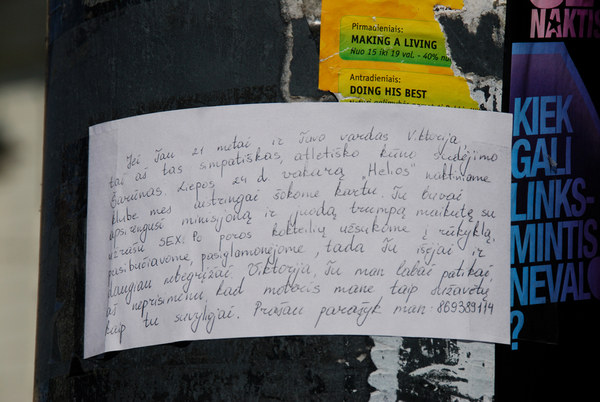 Pirmadieniais:
MAKING A LIVING
Nuo 15 iki 19 val. - 40%
Antradieniais:
DOING HIS BEST
NAKTIS
KIEK
GALI
LINKS-
MINTIS
NEVALG
?
Jei Tau 21 metai ir Tavo vardas Viktorija,
tai aš tas simpatiškas, atletiško kūno sudėjimo
Šarūnas. Liepos 24 d. vakarą "Helios" naktiniame
klube mes aistringai šokome kartu. Tu buvai
apsirengusi minisijoną ir juodą, trumpą maikutę su
užrašu SEXi. Po poros kokteilių užsukome į rūkyklą,
pasibučiavome, pasiglamonėjome, tada Tu išėjai ir
daugiau nebegrįžai. Viktorija, Tu man labai patikai,
aš neprisimenu, kad moteris mane taip sužavėtų
kaip tu suvylgai. Prašau parašyk man: 869389114